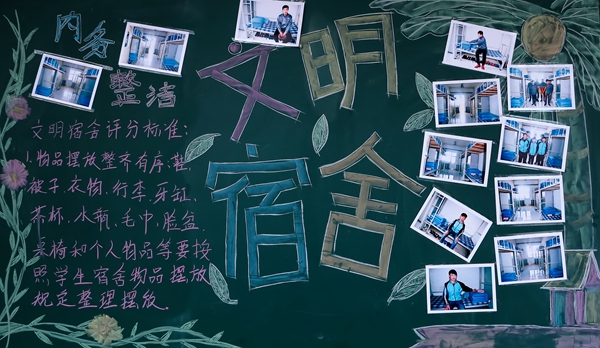 内务
整洁
文明
宿舍
文明宿舍评分标准:
1.物品摆放整齐有序,鞋、
被子、衣物、行李、牙缸、
茶杯、水瓶、毛巾、脸盆、
桌椅和个人物品等要按
照学生宿舍物品摆放
规定整理摆放。